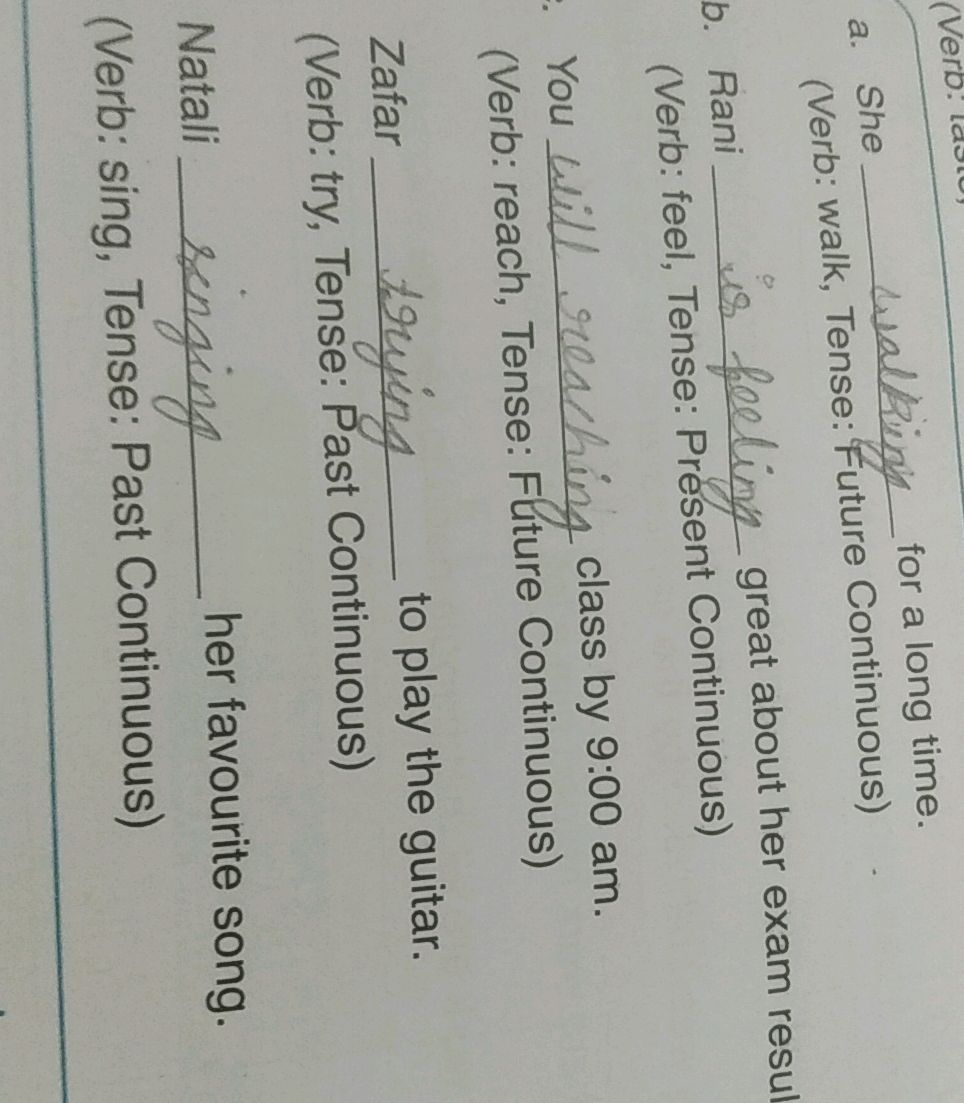 (Verb: taste,
a. She walking for a long time.
(Verb: walk, Tense: Future Continuous)
b. Rani is feeling great about her exam resul
(Verb: feel, Tense: Present Continuous)
You will reaching class by 9:00 am.
(Verb: reach, Tense: Future Continuous)
Zafar trying to play the guitar.
(Verb: try, Tense: Past Continuous)
Natali singing her favourite song.
(Verb: sing, Tense: Past Continuous)